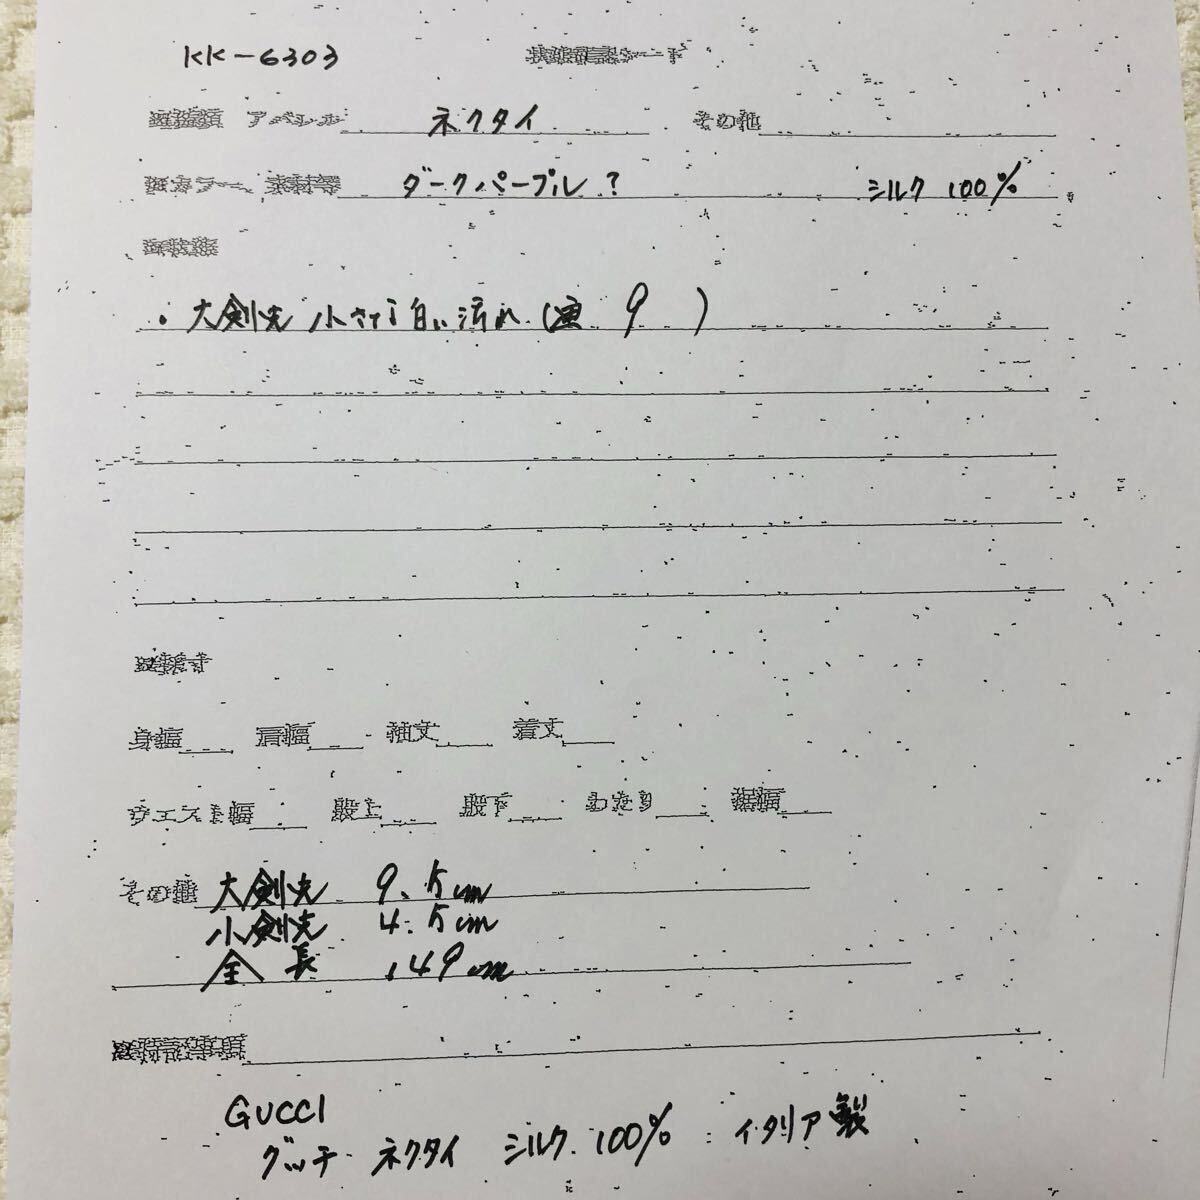 KK-6303
アパレル ネクタイ その他
カラー、素材等 ダークパープル? シルク 100%
・大剣先 小さな白い汚れ(画 9 )
身幅 肩幅 袖丈 着丈
ウエスト幅 股上 股下 わたり 裾幅
その他 大剣先 9.5cm
小剣先 4.5cm
全長 149cm
GUCCI
グッチ ネクタイ シルク 100% イタリア製